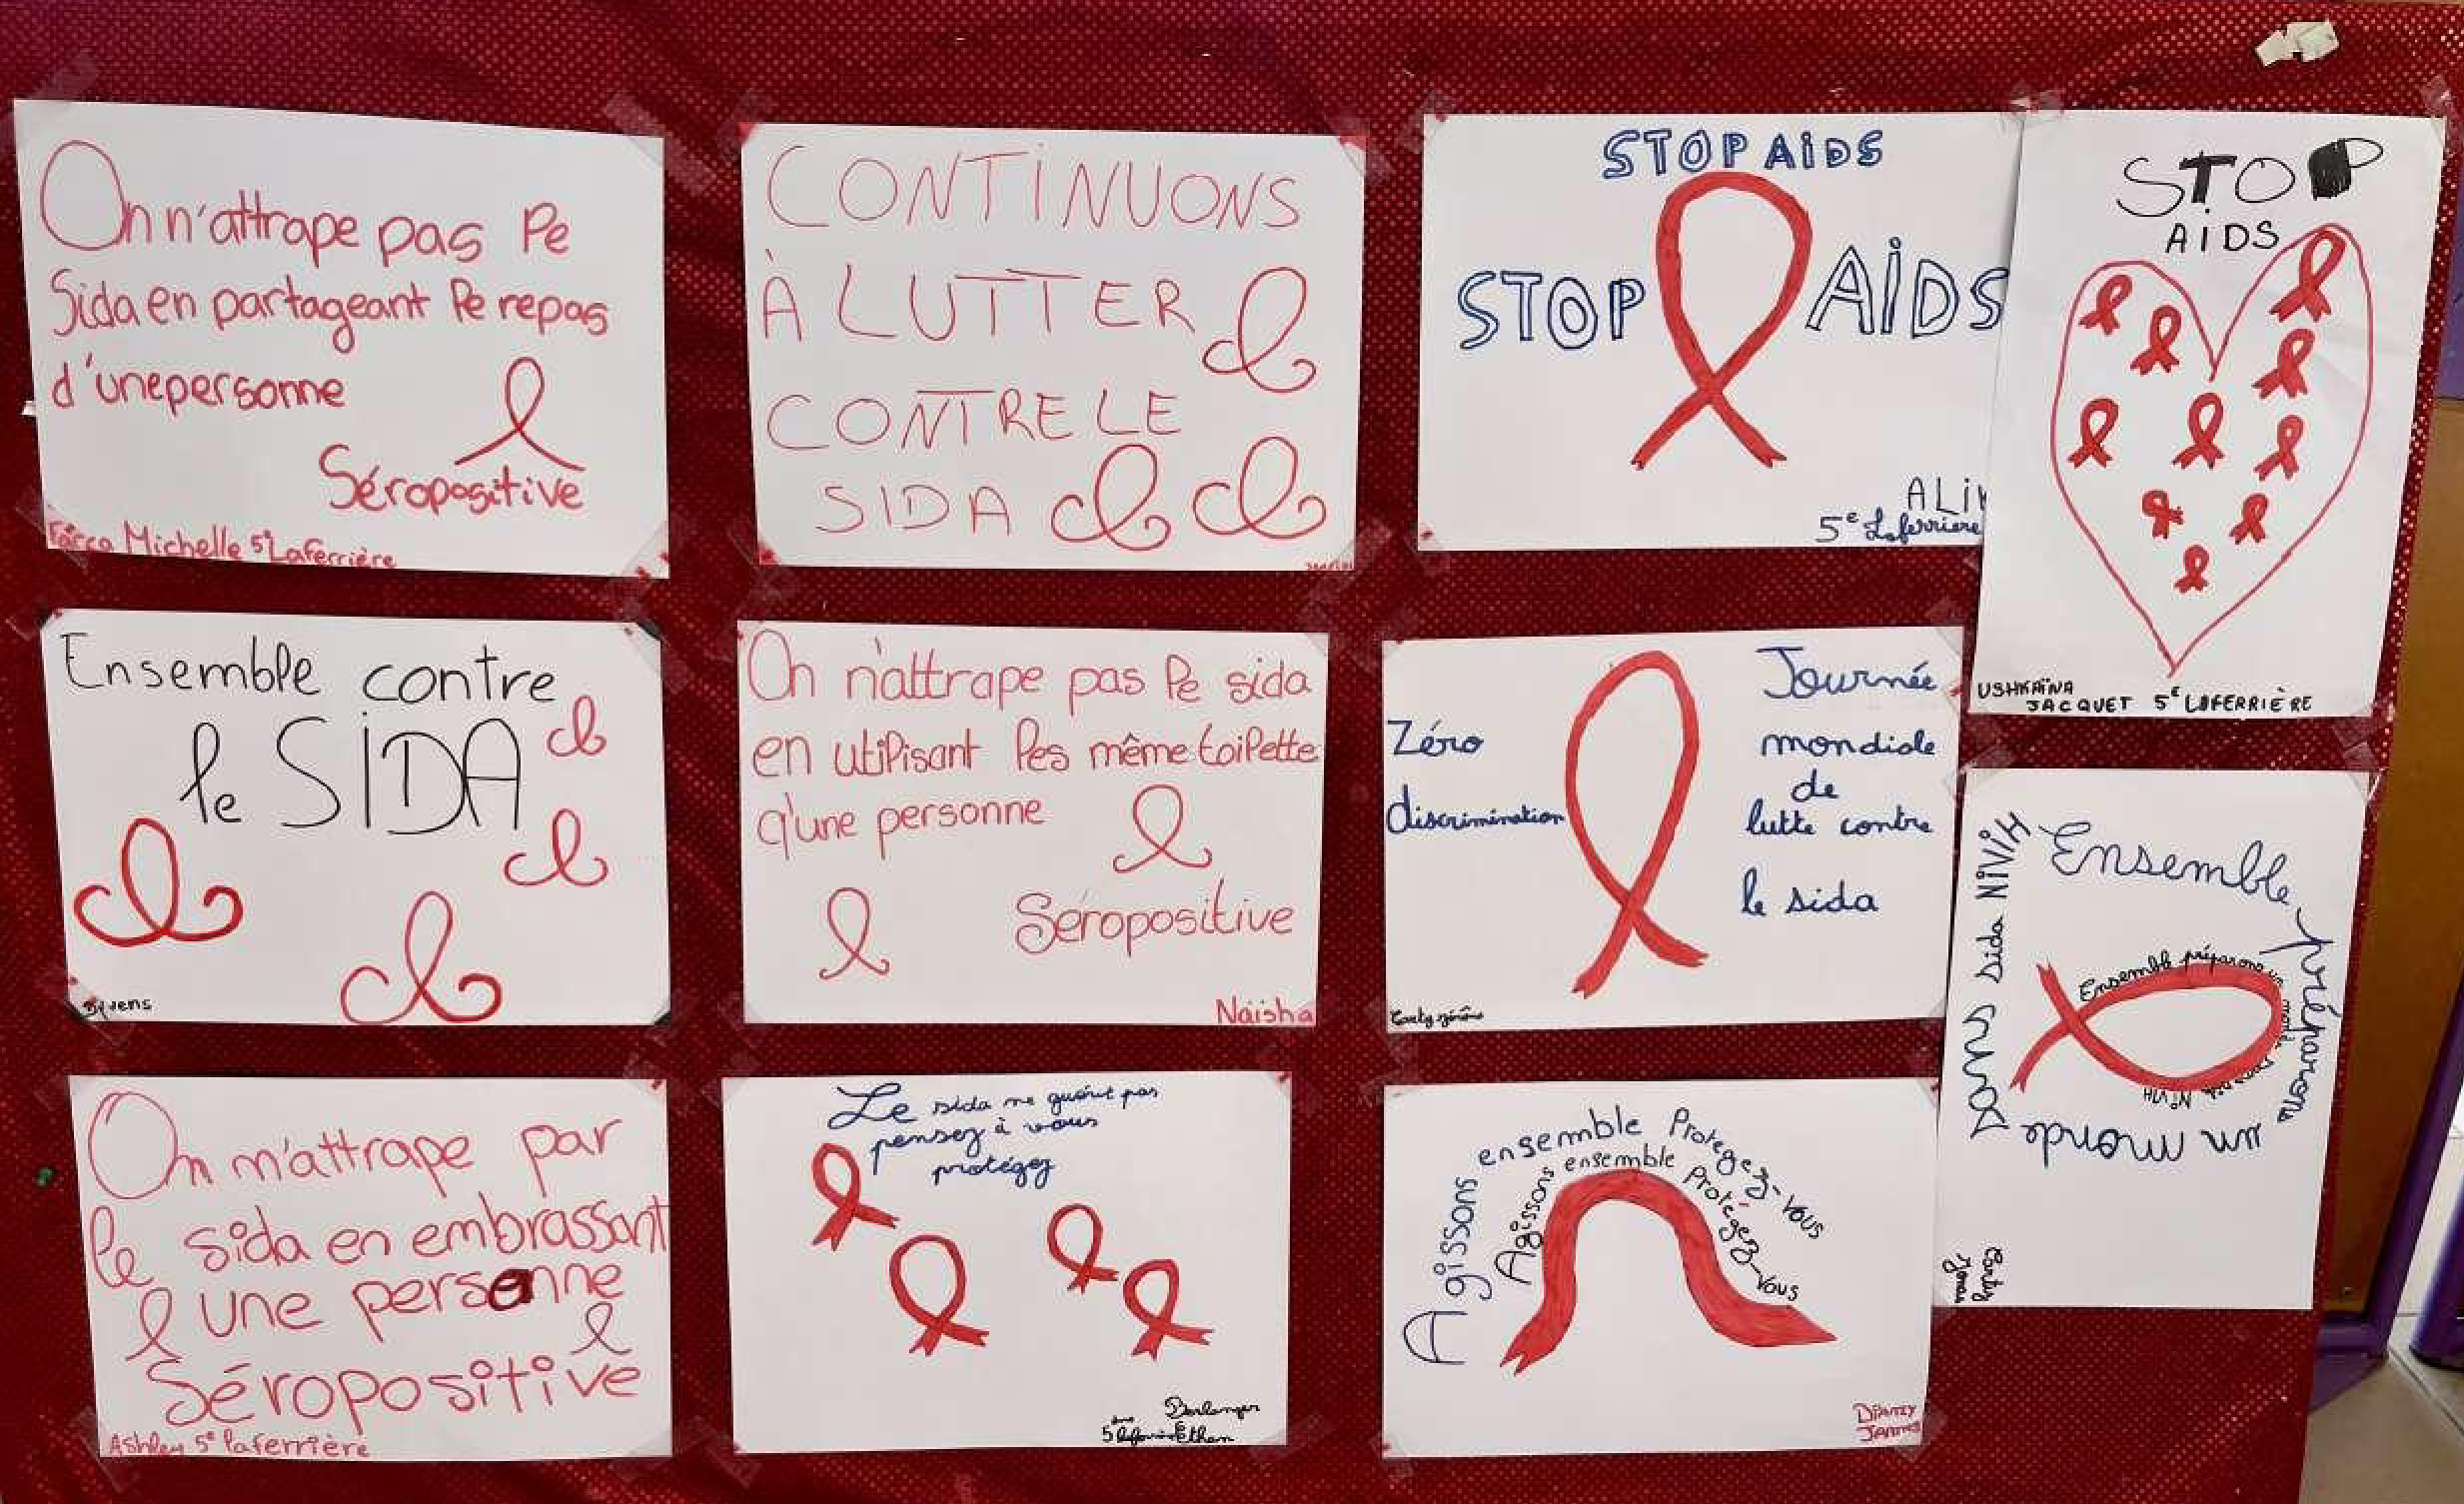 On n'attrape pas le
Sida en partageant le repas
d'une personne
Séropositive
Michelle 5e Laferrière
CONTINUONS
À LUTTER
CONTRE LE
SIDA
STOP AIDS
STOP AIDS
5e Laferriere
STOP
AIDS
USHKAÏNA
JACQUET 5E LAFERRIÈRE
Ensemble contre
le SIDA
On n'attrape pas le sida
en utilisant les même toilette
q'une personne
Séropositive
Naïsha
Zéro
discrimination
Journée
mondiale
de
lutte contre
le sida
Ensemble préparons
un monde
sans sida Ni VIH
Ensemble préparons un monde
Ni VIH
On m'attrape par
le sida en embrassant
une personne
Séropositive
Ashley 5e laferrière
Le sida ne guérit pas
pensez à vous
protégez
Berlanger
Ethan
Agissons ensemble Protegez-Vous
Agissons ensemble Protégez-Vous